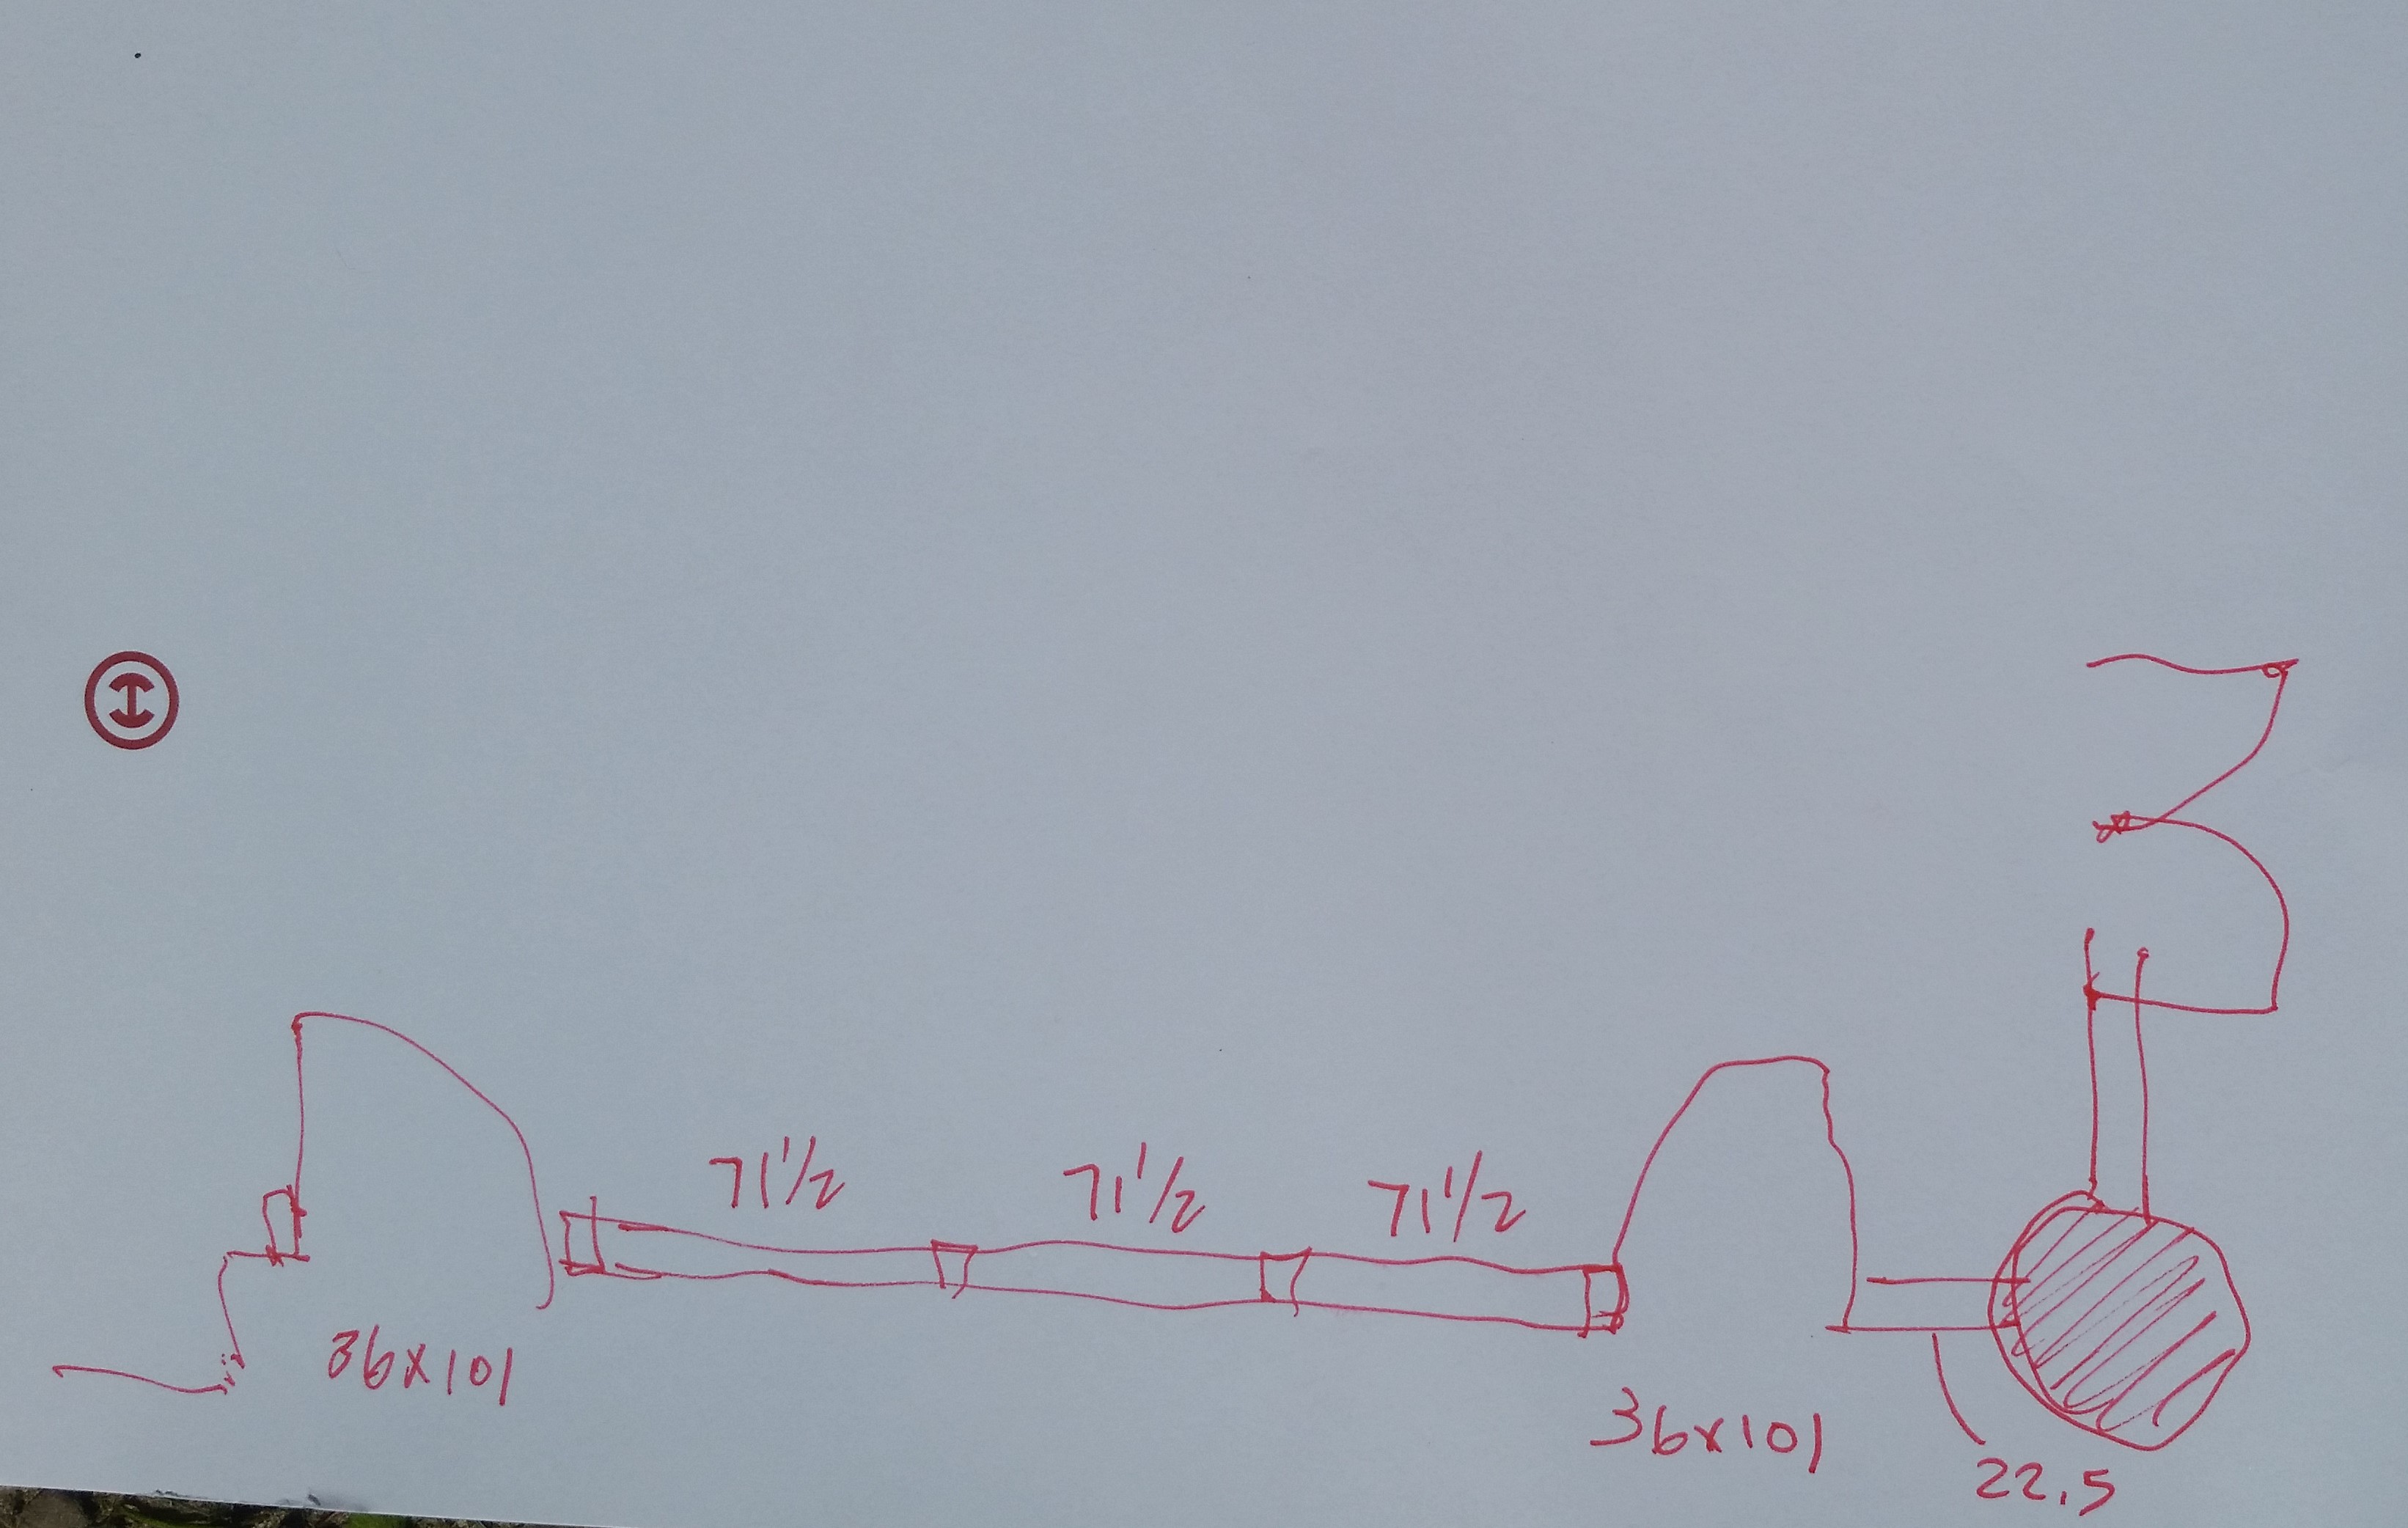 71 1/2
71 1/2
71 1/2
36x101
36x101
22.5